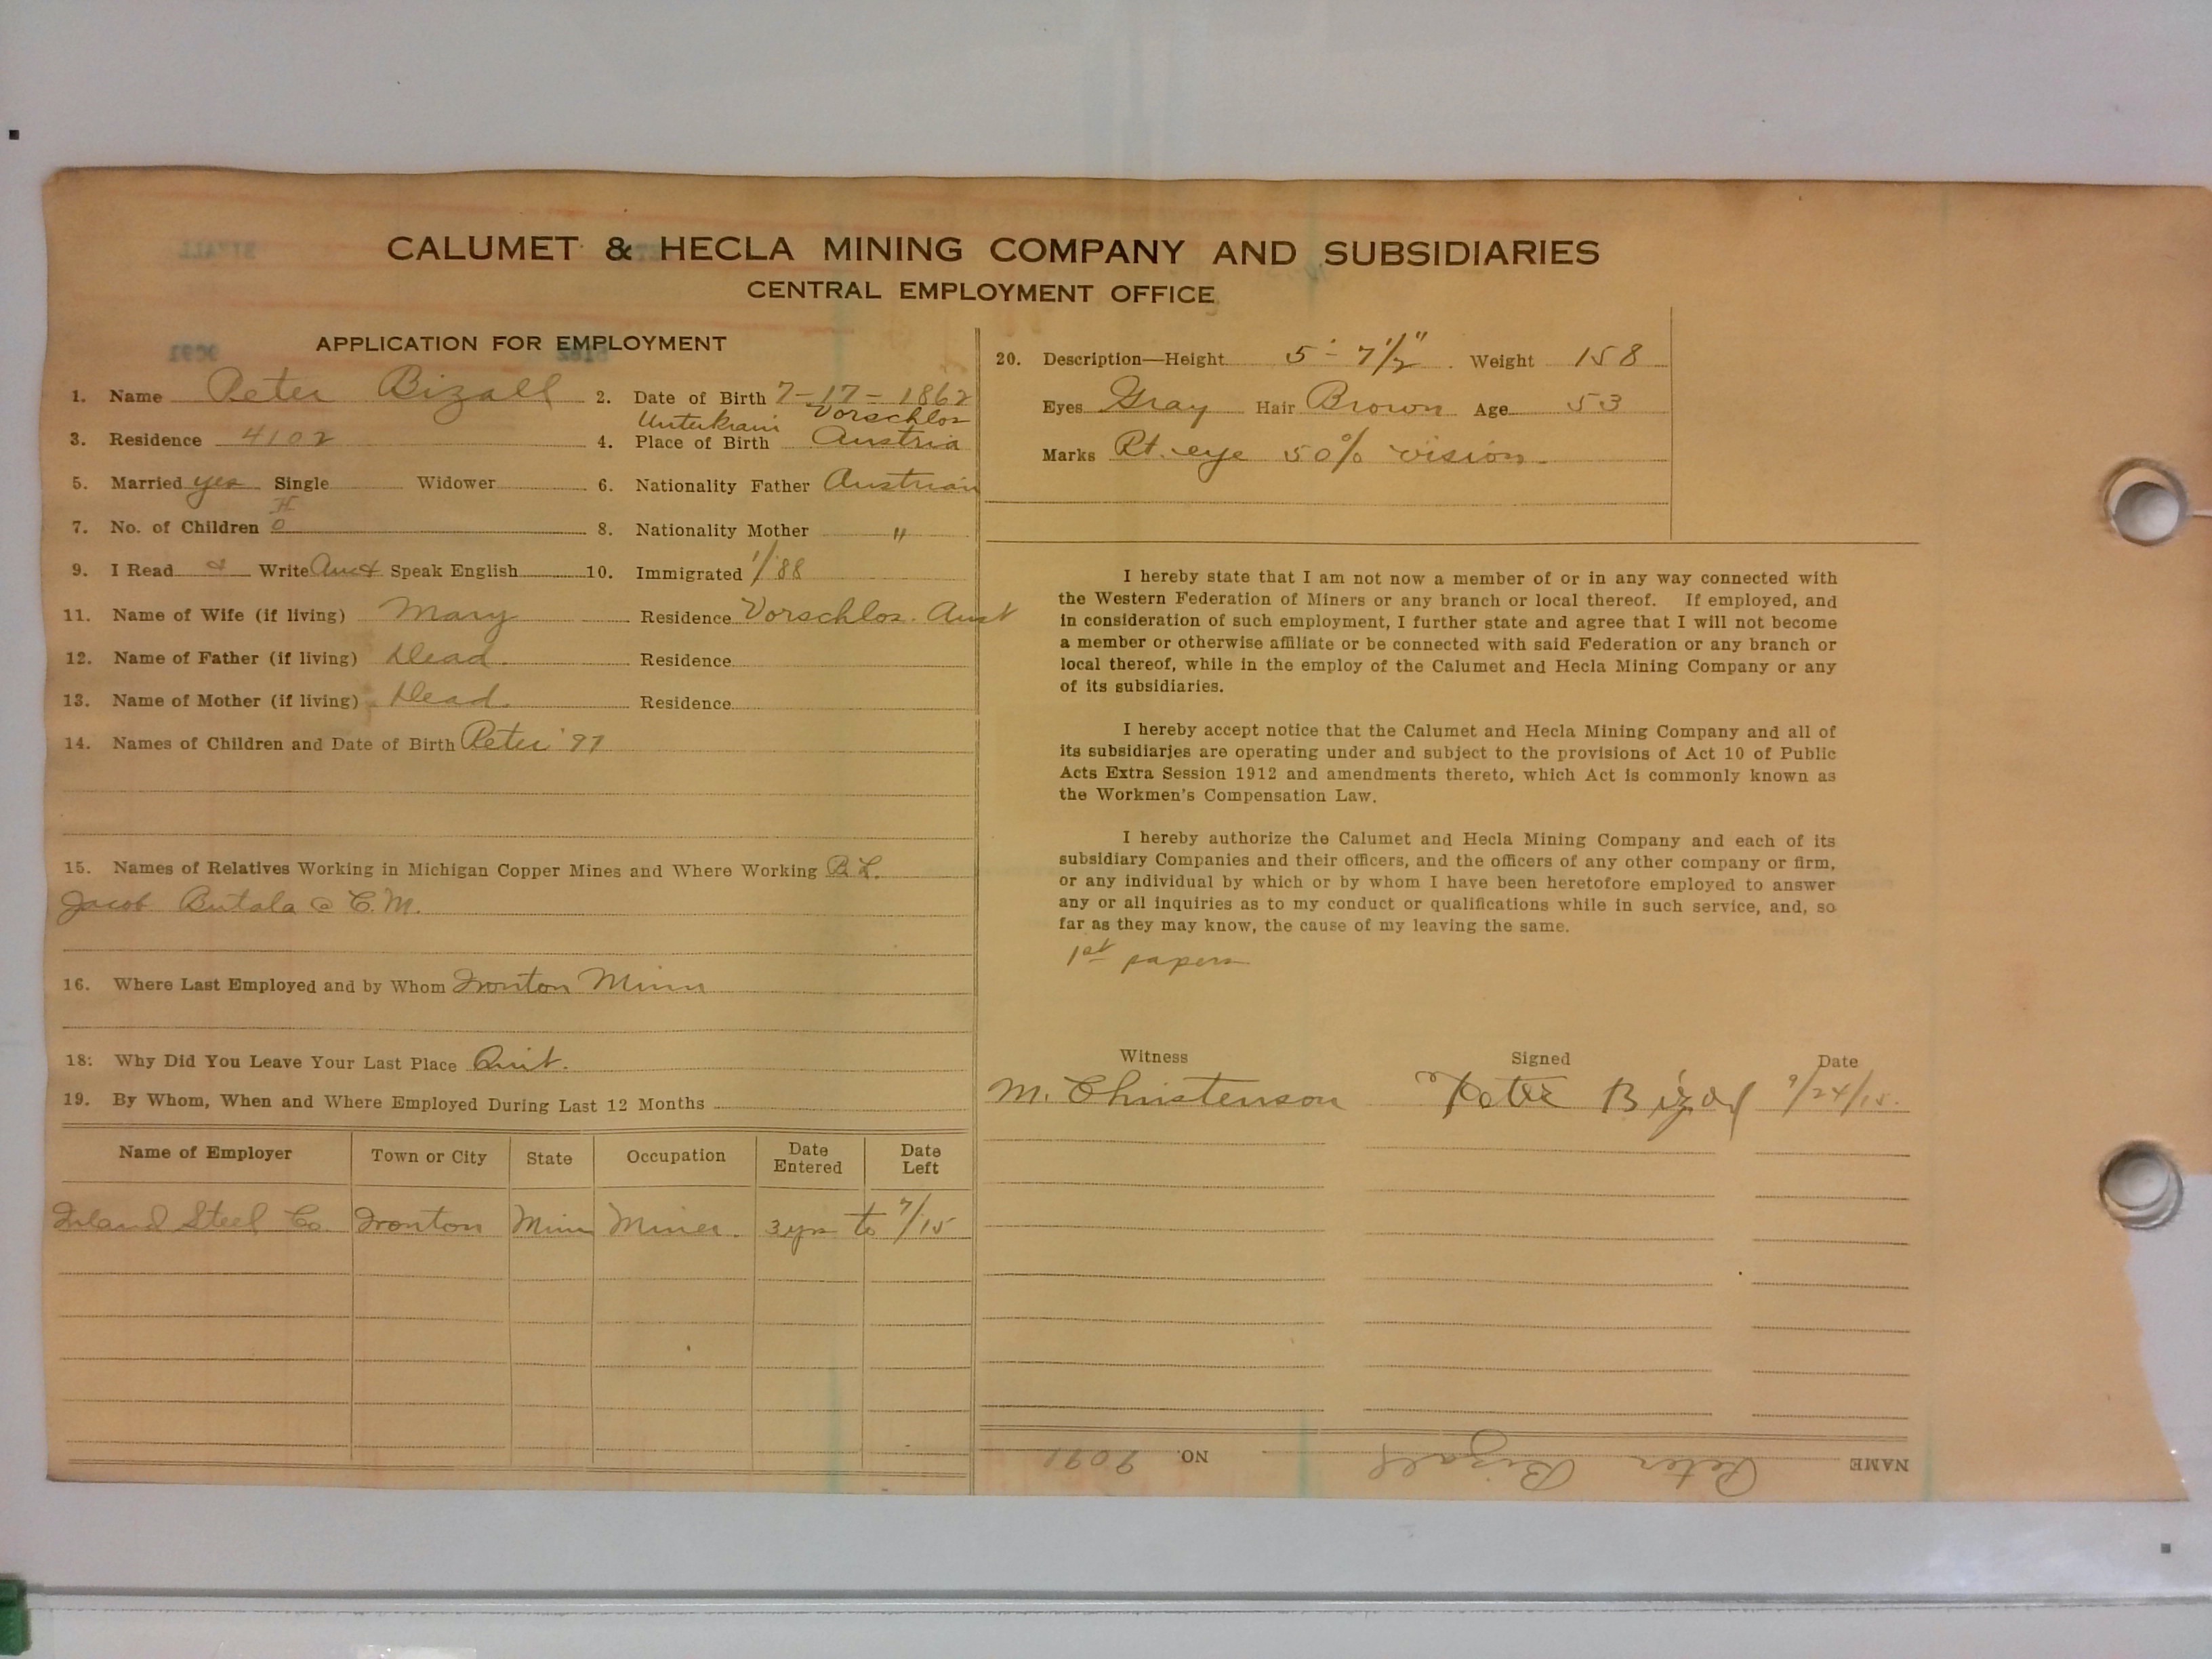 CALUMET & HECLA MINING COMPANY AND SUBSIDIARIES
CENTRAL EMPLOYMENT OFFICE
APPLICATION FOR EMPLOYMENT
1. Name Peter Bizall 2. Date of Birth 7-17-1862
Unterkrain Vorschlos
3. Residence 4102 4. Place of Birth Austria
5. Married yes Single Widower 6. Nationality Father Austrian
7. No. of Children 8. Nationality Mother "
9. I Read & Write Aust Speak English 10. Immigrated 1/88
11. Name of Wife (if living) Mary Residence Vorschlos. Aust
12. Name of Father (if living) Dead. Residence
13. Name of Mother (if living) Dead. Residence
14. Names of Children and Date of Birth Peter '97
15. Names of Relatives Working in Michigan Copper Mines and Where Working B.L.
Jacob Butala @ C.M.
16. Where Last Employed and by Whom Ironton Minn
18: Why Did You Leave Your Last Place Quit.
19. By Whom, When and Where Employed During Last 12 Months
Name of Employer Town or City State Occupation Date Entered Date Left
Inland Steel Co. Ironton Minn Miner. 3yrs to 7/15
20. Description—Height 5'-7½" Weight 158
Eyes Gray Hair Brown Age 53
Marks Rt. eye 50% vision.
I hereby state that I am not now a member of or in any way connected with
the Western Federation of Miners or any branch or local thereof. If employed, and
in consideration of such employment, I further state and agree that I will not become
a member or otherwise affiliate or be connected with said Federation or any branch or
local thereof, while in the employ of the Calumet and Hecla Mining Company or any
of its subsidiaries.
I hereby accept notice that the Calumet and Hecla Mining Company and all of
its subsidiaries are operating under and subject to the provisions of Act 10 of Public
Acts Extra Session 1912 and amendments thereto, which Act is commonly known as
the Workmen's Compensation Law.
I hereby authorize the Calumet and Hecla Mining Company and each of its
subsidiary Companies and their officers, and the officers of any other company or firm,
or any individual by which or by whom I have been heretofore employed to answer
any or all inquiries as to my conduct or qualifications while in such service, and, so
far as they may know, the cause of my leaving the same.
1st papers
Witness Signed Date
M. Christenson Peter Bizal 9/24/15.
NAME Peter Bizall NO. 9091